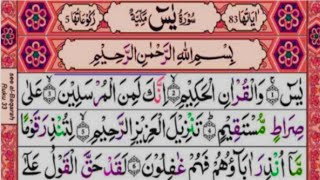 اٰیَاتُهَا 83 سُوْرَةُ یٰسٓ مَكِّيَّةٌ رُكُوْعَاتُهَا 5
بِسْمِ اللّٰهِ الرَّحْمٰنِ الرَّحِيْمِ
يٰسٓ ۝ وَالْقُرْاٰنِ الْحَكِيْمِ ۝ اِنَّكَ لَمِنَ الْمُرْسَلِيْنَ ۝ عَلٰى
صِرَاطٍ مُّسْتَقِيْمٍ ۝ تَنْزِيْلَ الْعَزِيْزِ الرَّحِيْمِ ۝ لِتُنْذِرَ قَوْمًا
مَّاۤ اُنْذِرَ اٰبَآؤُهُمْ فَهُمْ غٰفِلُوْنَ ۝ لَقَدْ حَقَّ الْقَوْلُ عَلٰٓى